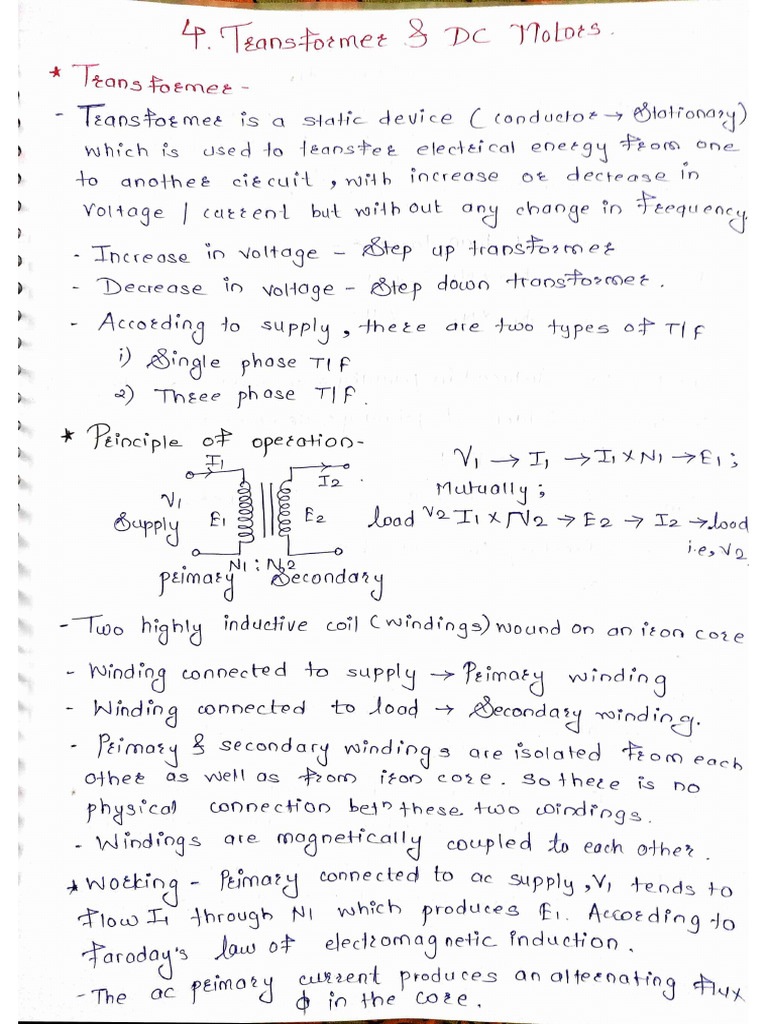 4. Transformer & DC Motors.
* Transformer -
- Transformer is a static device (conductor → Stationary)
which is used to transfer electrical energy from one
to another circuit, with increase or decrease in
voltage / current but without any change in frequency.
- Increase in voltage - Step up transformer
- Decrease in voltage - Step down transformer.
- According to supply, there are two types of T/f
i) Single phase T/f
2) Three phase T/f.
* Principle of operation-
I1
I2
V1
Supply
E1
E2
load
N1 : N2
primary Secondary
V1 → I1 → I1 x N1 → E1 ;
Mutually ;
V2 I1 x N2 → E2 → I2 → load
i.e, V2
- Two highly inductive coil (windings) wound on an iron core
- Winding connected to supply → Primary winding
- Winding connected to load → Secondary winding.
- Primary & secondary windings are isolated from each
other as well as from iron core. so there is no
physical connection betn these two windings.
- Windings are magnetically coupled to each other.
* Working - Primary connected to ac supply, V1 tends to
flow I1 through N1 which produces E1. According to
Faraday's law of electromagnetic induction.
- The ac primary current produces an alternating flux
ϕ in the core.